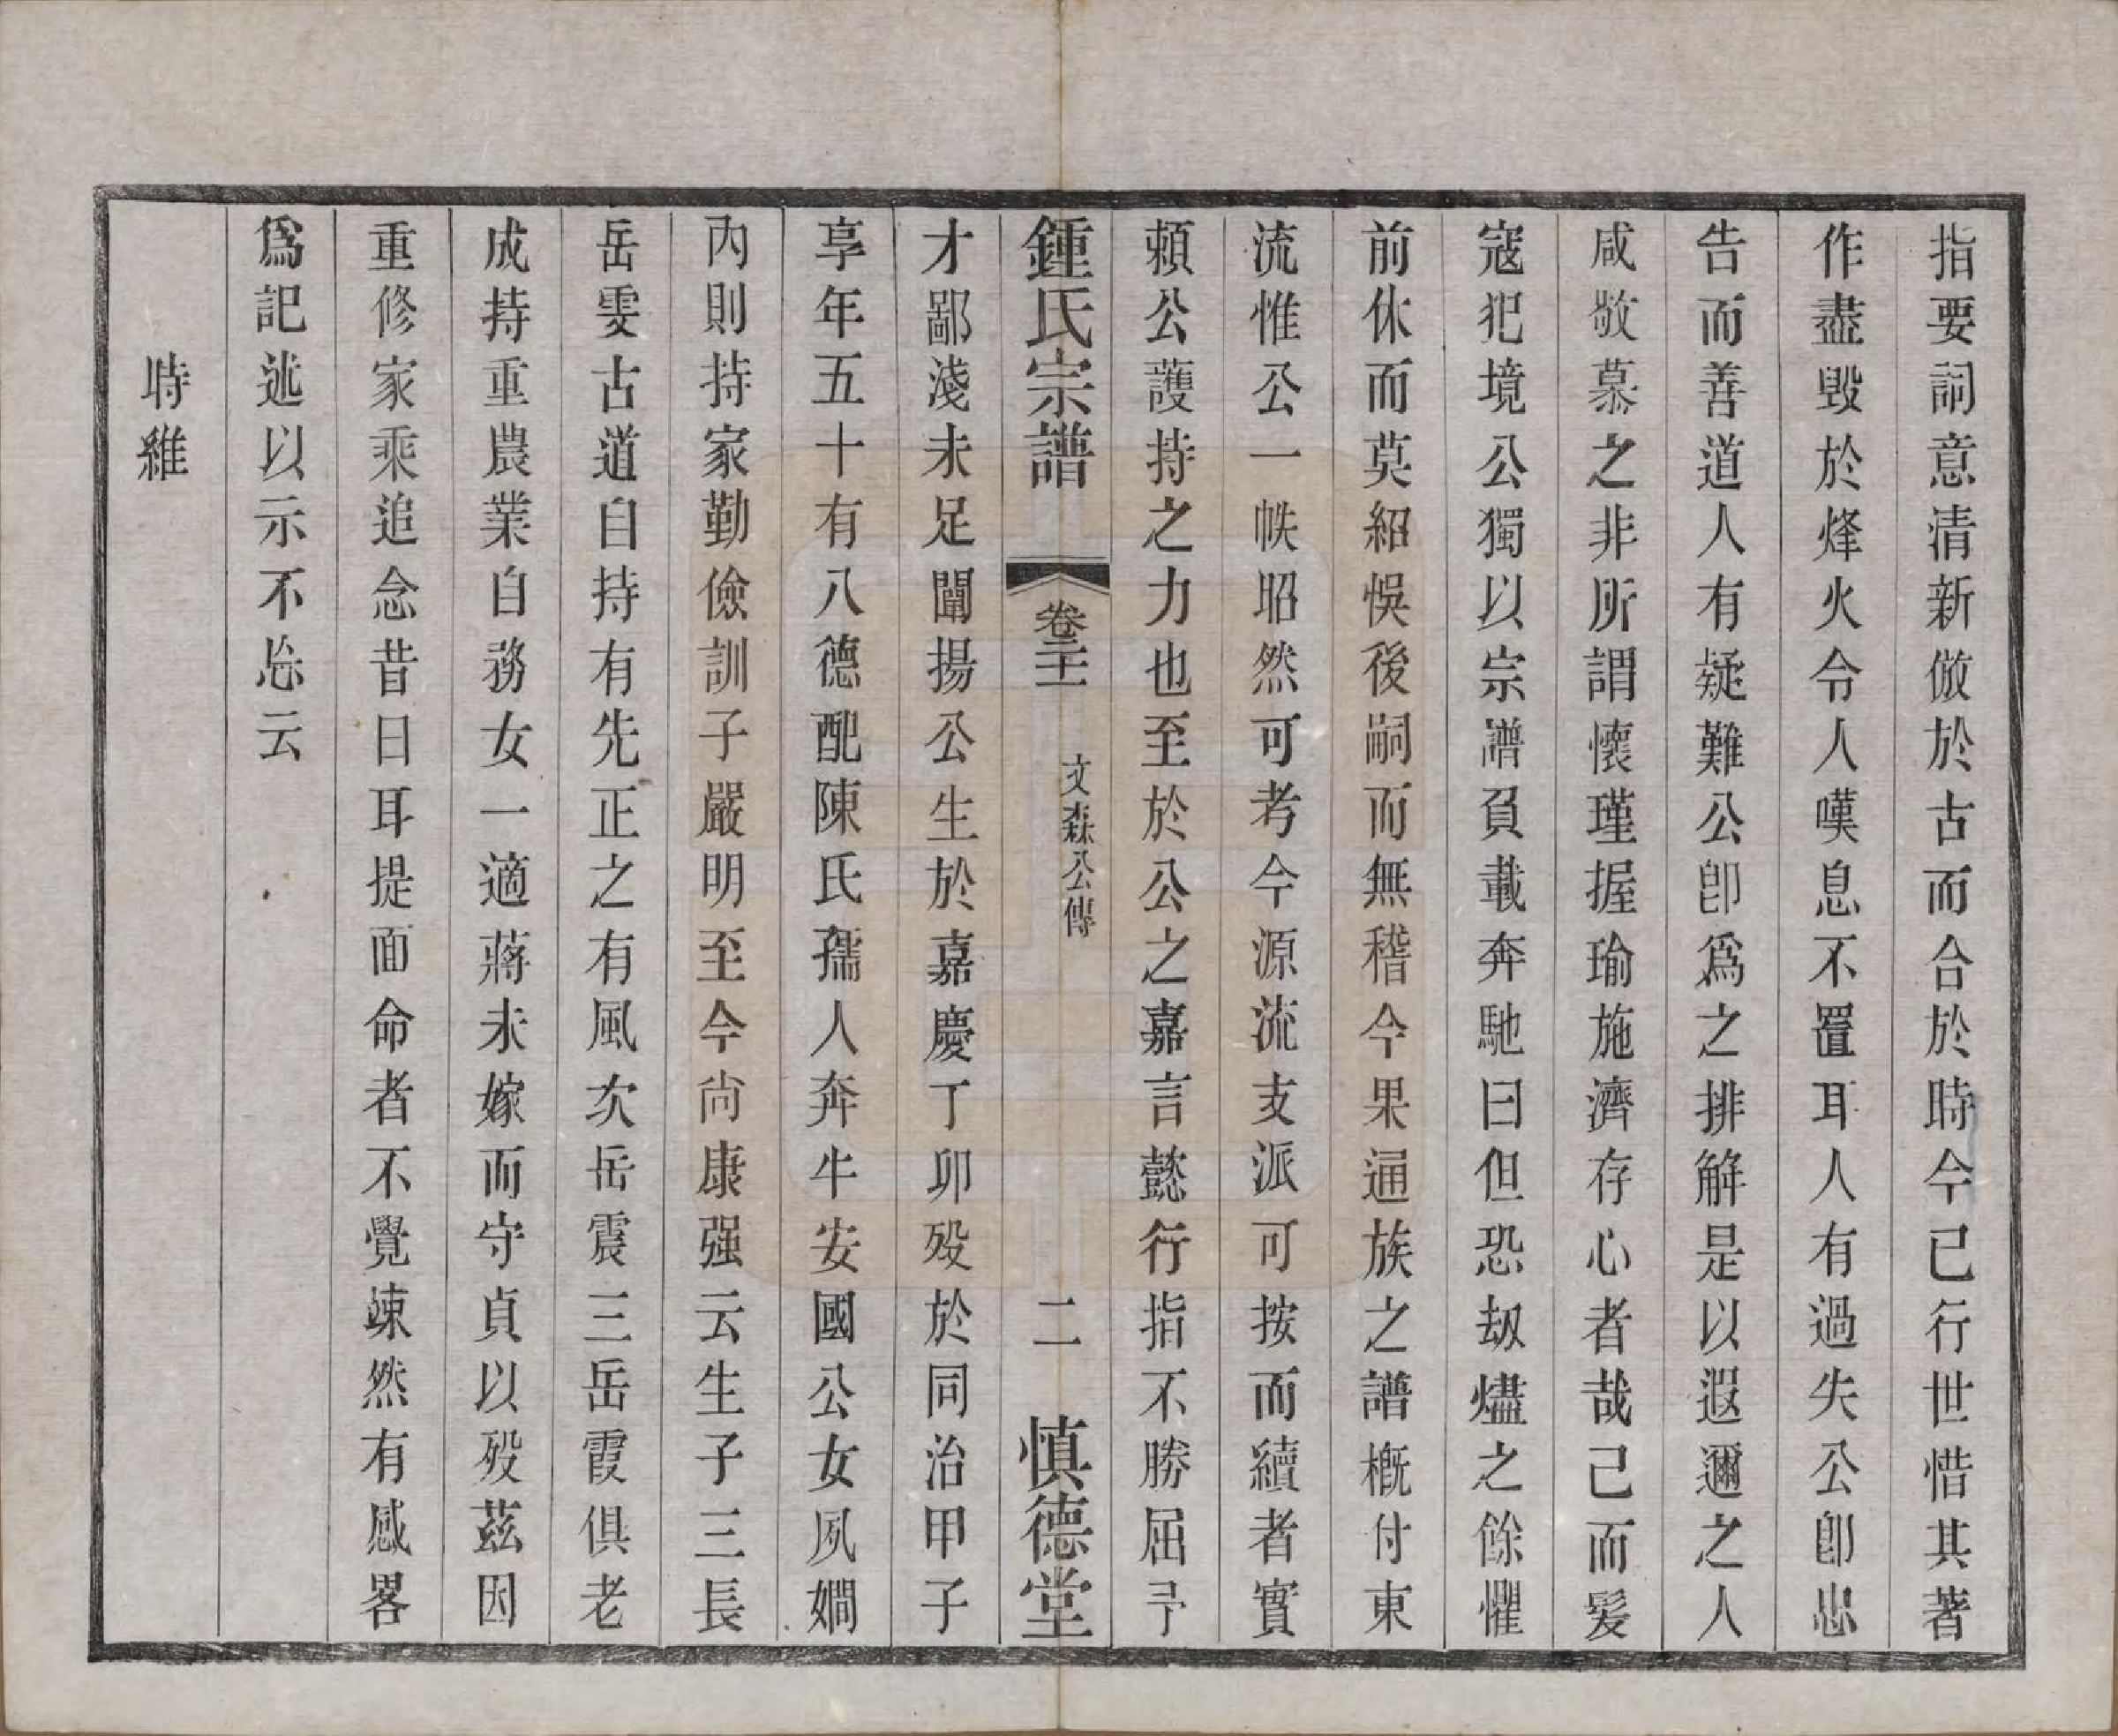 指要詞意清新倣於古而合於時今已行世惜其著
作盡毀於烽火令人嘆息不置耳人有過失公卽忠
告而善道人有疑難公卽爲之排解是以遐邇之人
咸敬慕之非所謂懷瑾握瑜施濟存心者哉己而髮
寇犯境公獨以宗譜負載奔馳曰但恐刼燼之餘懼
前休而莫紹悞後嗣而無稽今果通族之譜槪付東
流惟公一帙昭然可考今源流支派可按而續者實
賴公護持之力也至於公之嘉言懿行指不勝屈予
鍾氏宗譜 卷二 文森公傳 二 慎德堂
才鄙淺未足闡揚公生於嘉慶丁卯殁於同治甲子
享年五十有八德配陳氏孺人奔牛安國公女夙嫻
內則持家勤儉訓子嚴明至今尚康强云生子三長
岳雯古道自持有先正之有風次岳震三岳霞俱老
成持重農業自務女一適蔣未嫁而守貞以殁茲因
重修家乘追念昔日耳提面命者不覺竦然有感畧
爲記述以示不忘云
時維